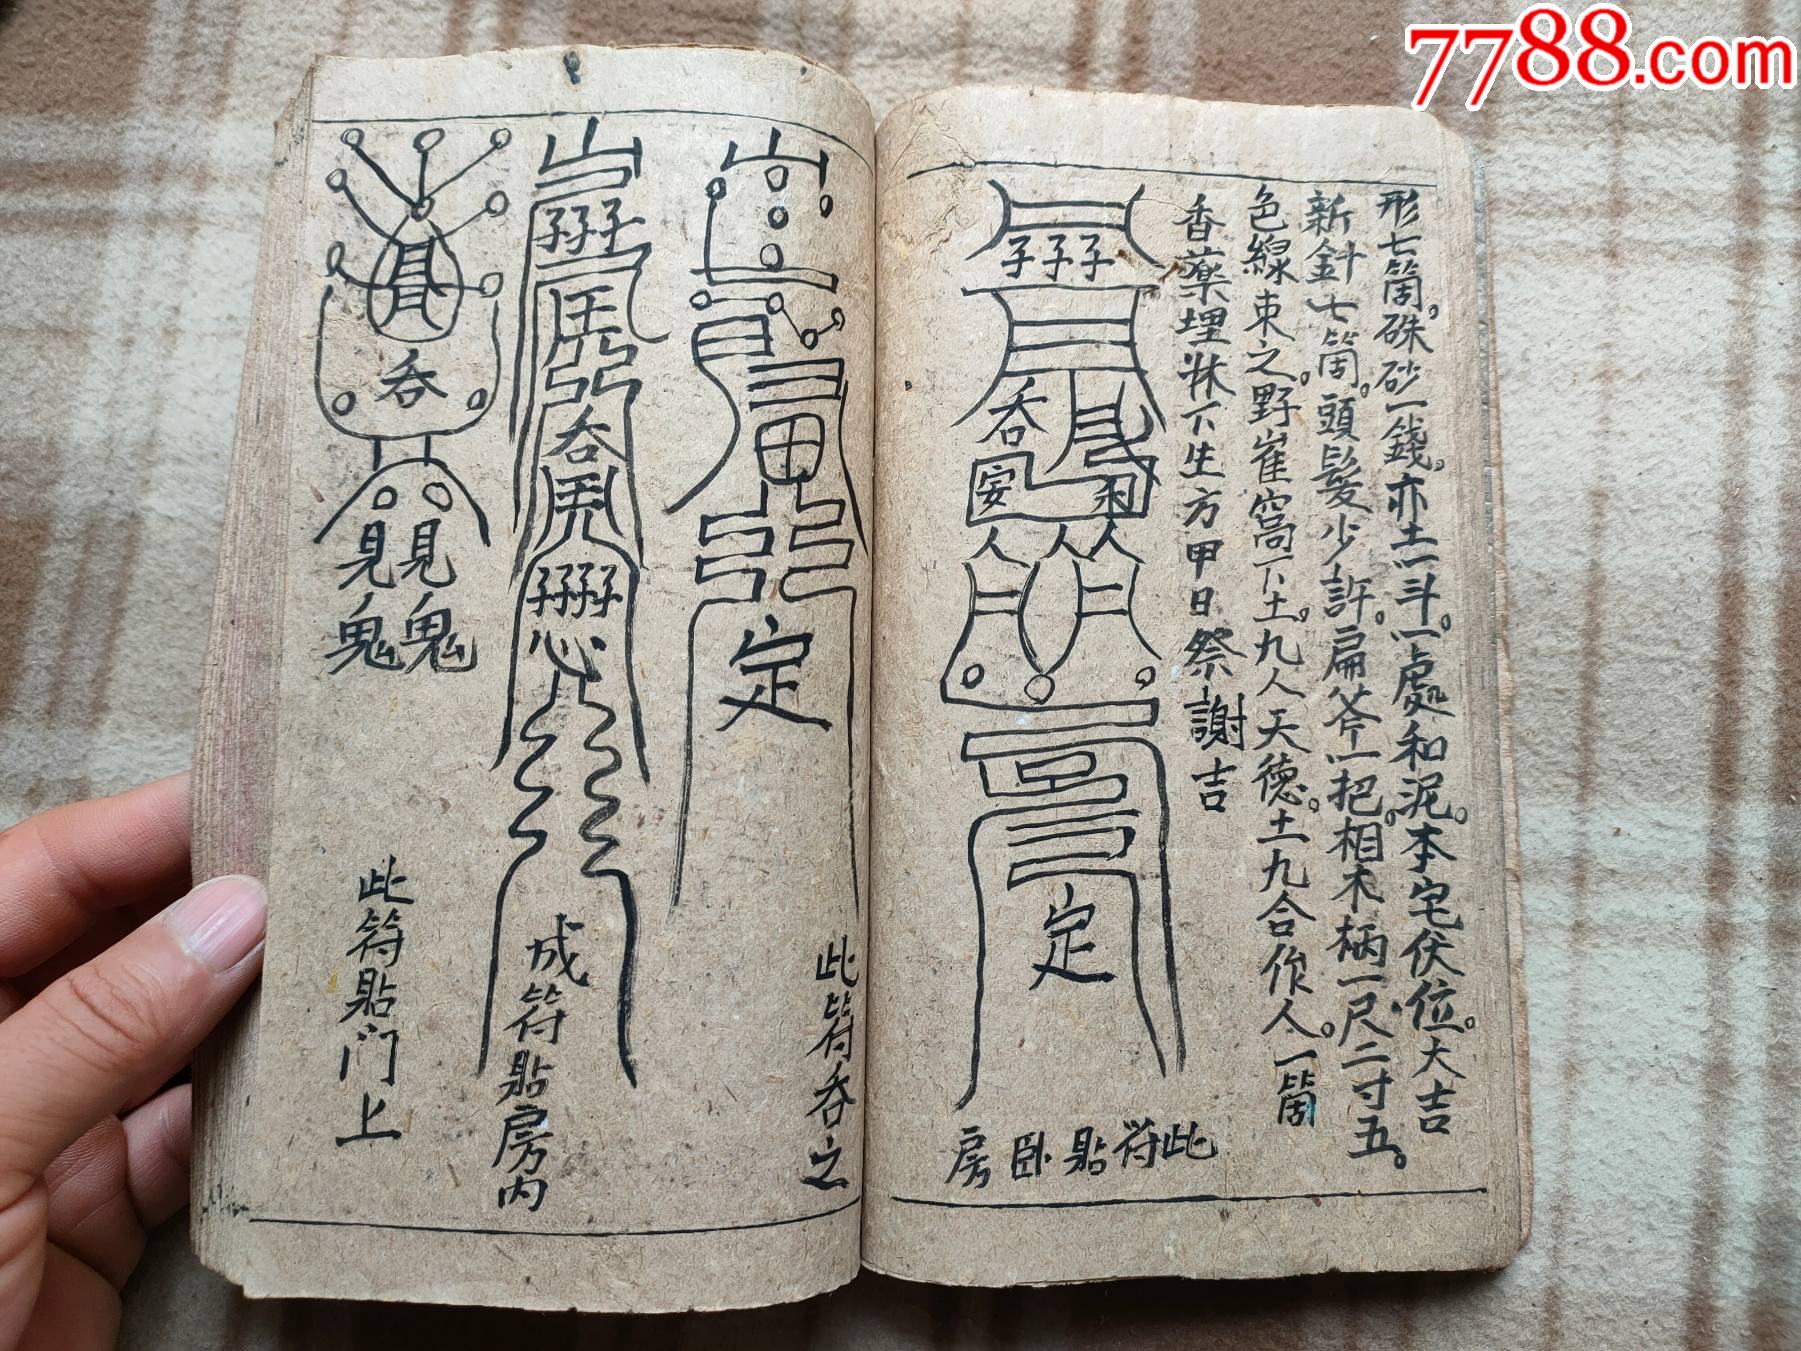 7788.com
形七箇。硃砂一錢。亦土一斗。一處和泥。本宅伏位。大吉
新針七箇。頭髮少許。扁斧一把。相木柄一尺二寸五。
色線束之。野崔窩下土。九人天德。土九合作人。一箇
香藥埋牀下生方甲日祭謝吉
子子子
吞
安
定
此符貼卧房
定
此符吞之
子子子
吞
心
成符貼房內
吞
見見
鬼鬼
此符貼门上